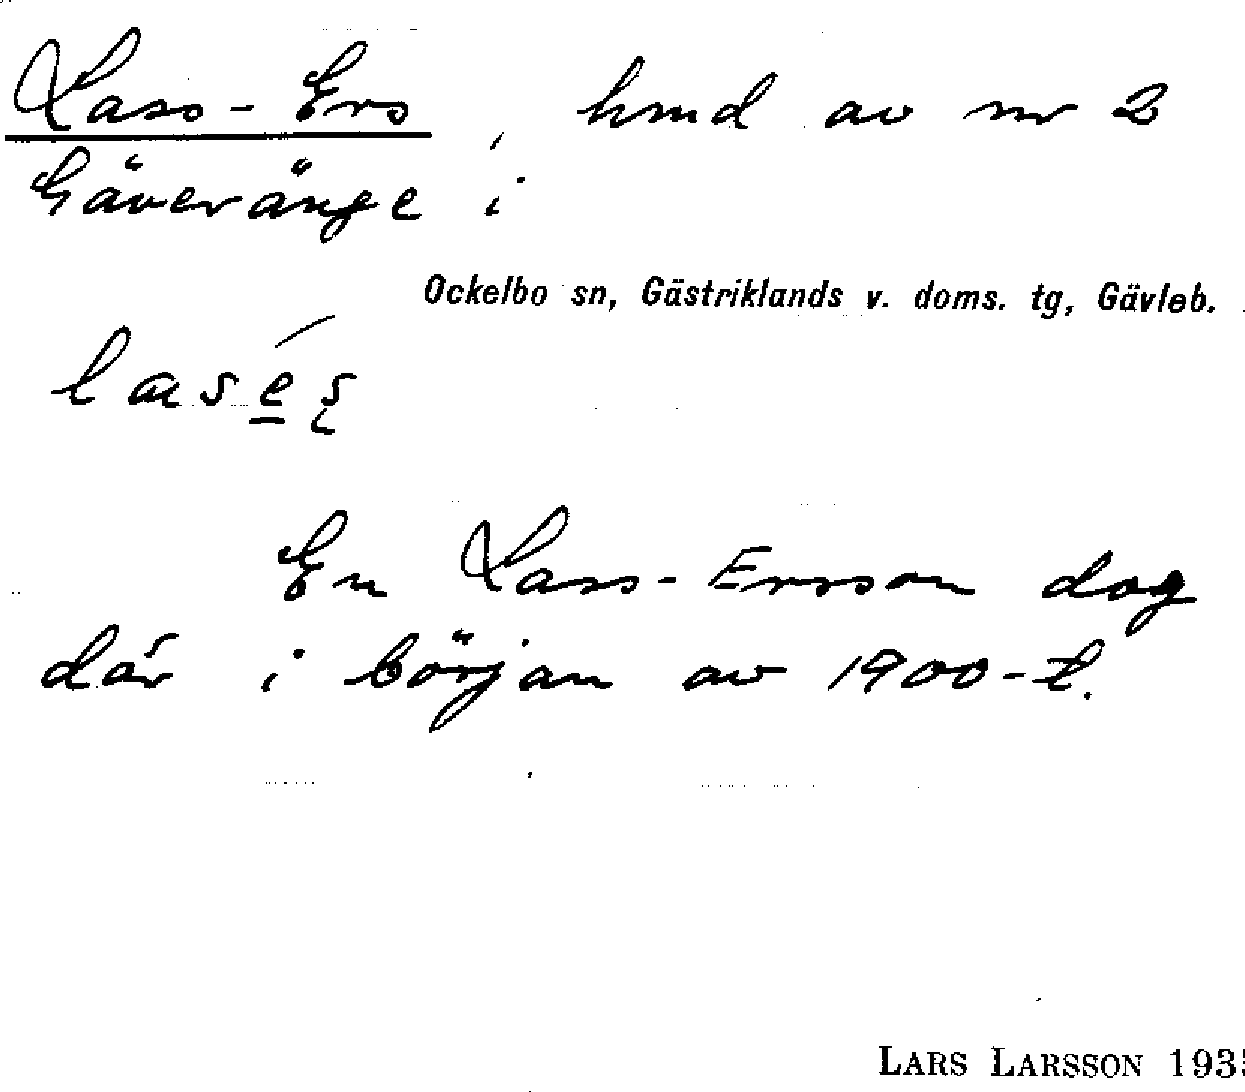 Lass-Ers, hmd av nr 2
Gäveränge i
Ockelbo sn, Gästriklands v. doms. tg, Gävleb.
En Lass-Ersson dog
där i början av 1900-t.
LARS LARSSON